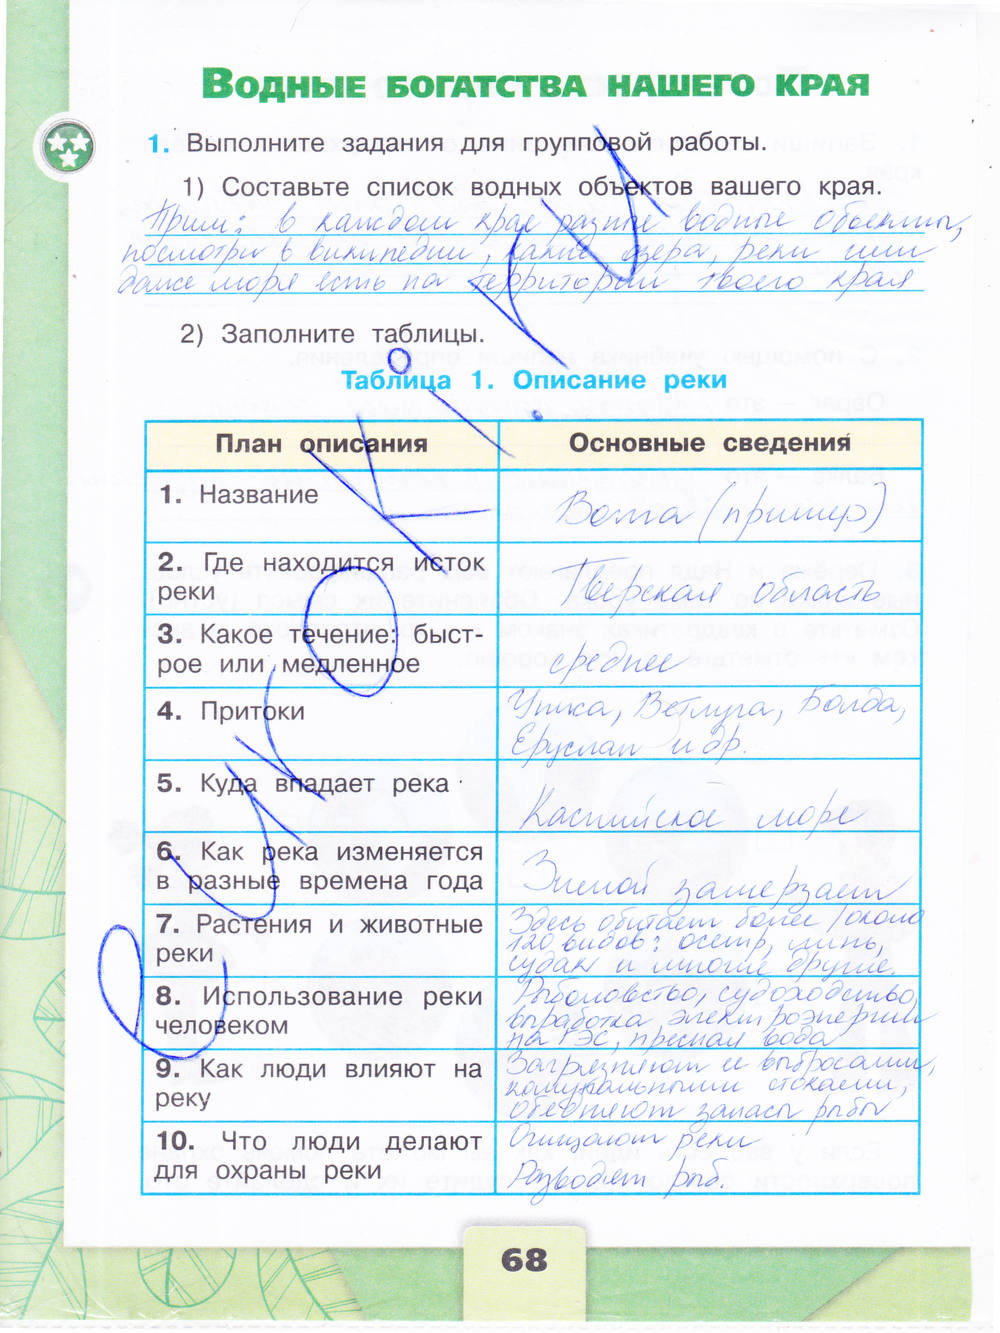 Водные богатства нашего края
1. Выполните задания для групповой работы.
1) Составьте список водных объектов вашего края.
Прим: в каждом крае разные водные объекты,
посмотри в википедии, какие озера, реки или
даже моря есть на территории твоего края
2) Заполните таблицы.
Таблица 1. Описание реки
План описания
Основные сведения
1. Название
Волга (пример)
2. Где находится исток
реки
Тверская область
3. Какое течение: быст-
рое или медленное
среднее
4. Притоки
Унжа, Ветлуга, Болда,
Еруслан и др.
5. Куда впадает река
Каспийское море
6. Как река изменяется
в разные времена года
Зимой замерзает
7. Растения и животные
реки
Здесь обитает более /около
120 видов: осетр, линь,
судак и многие другие.
8. Использование реки
человеком
Рыболовство, судоходство,
выработка электроэнергии
на ГЭС, пресная вода
9. Как люди влияют на
реку
Загрязняют ее выбросами,
коммунальными стоками,
обедняют запасы рыбы
10. Что люди делают
для охраны реки
Очищают реки
Разводят рыб.
68